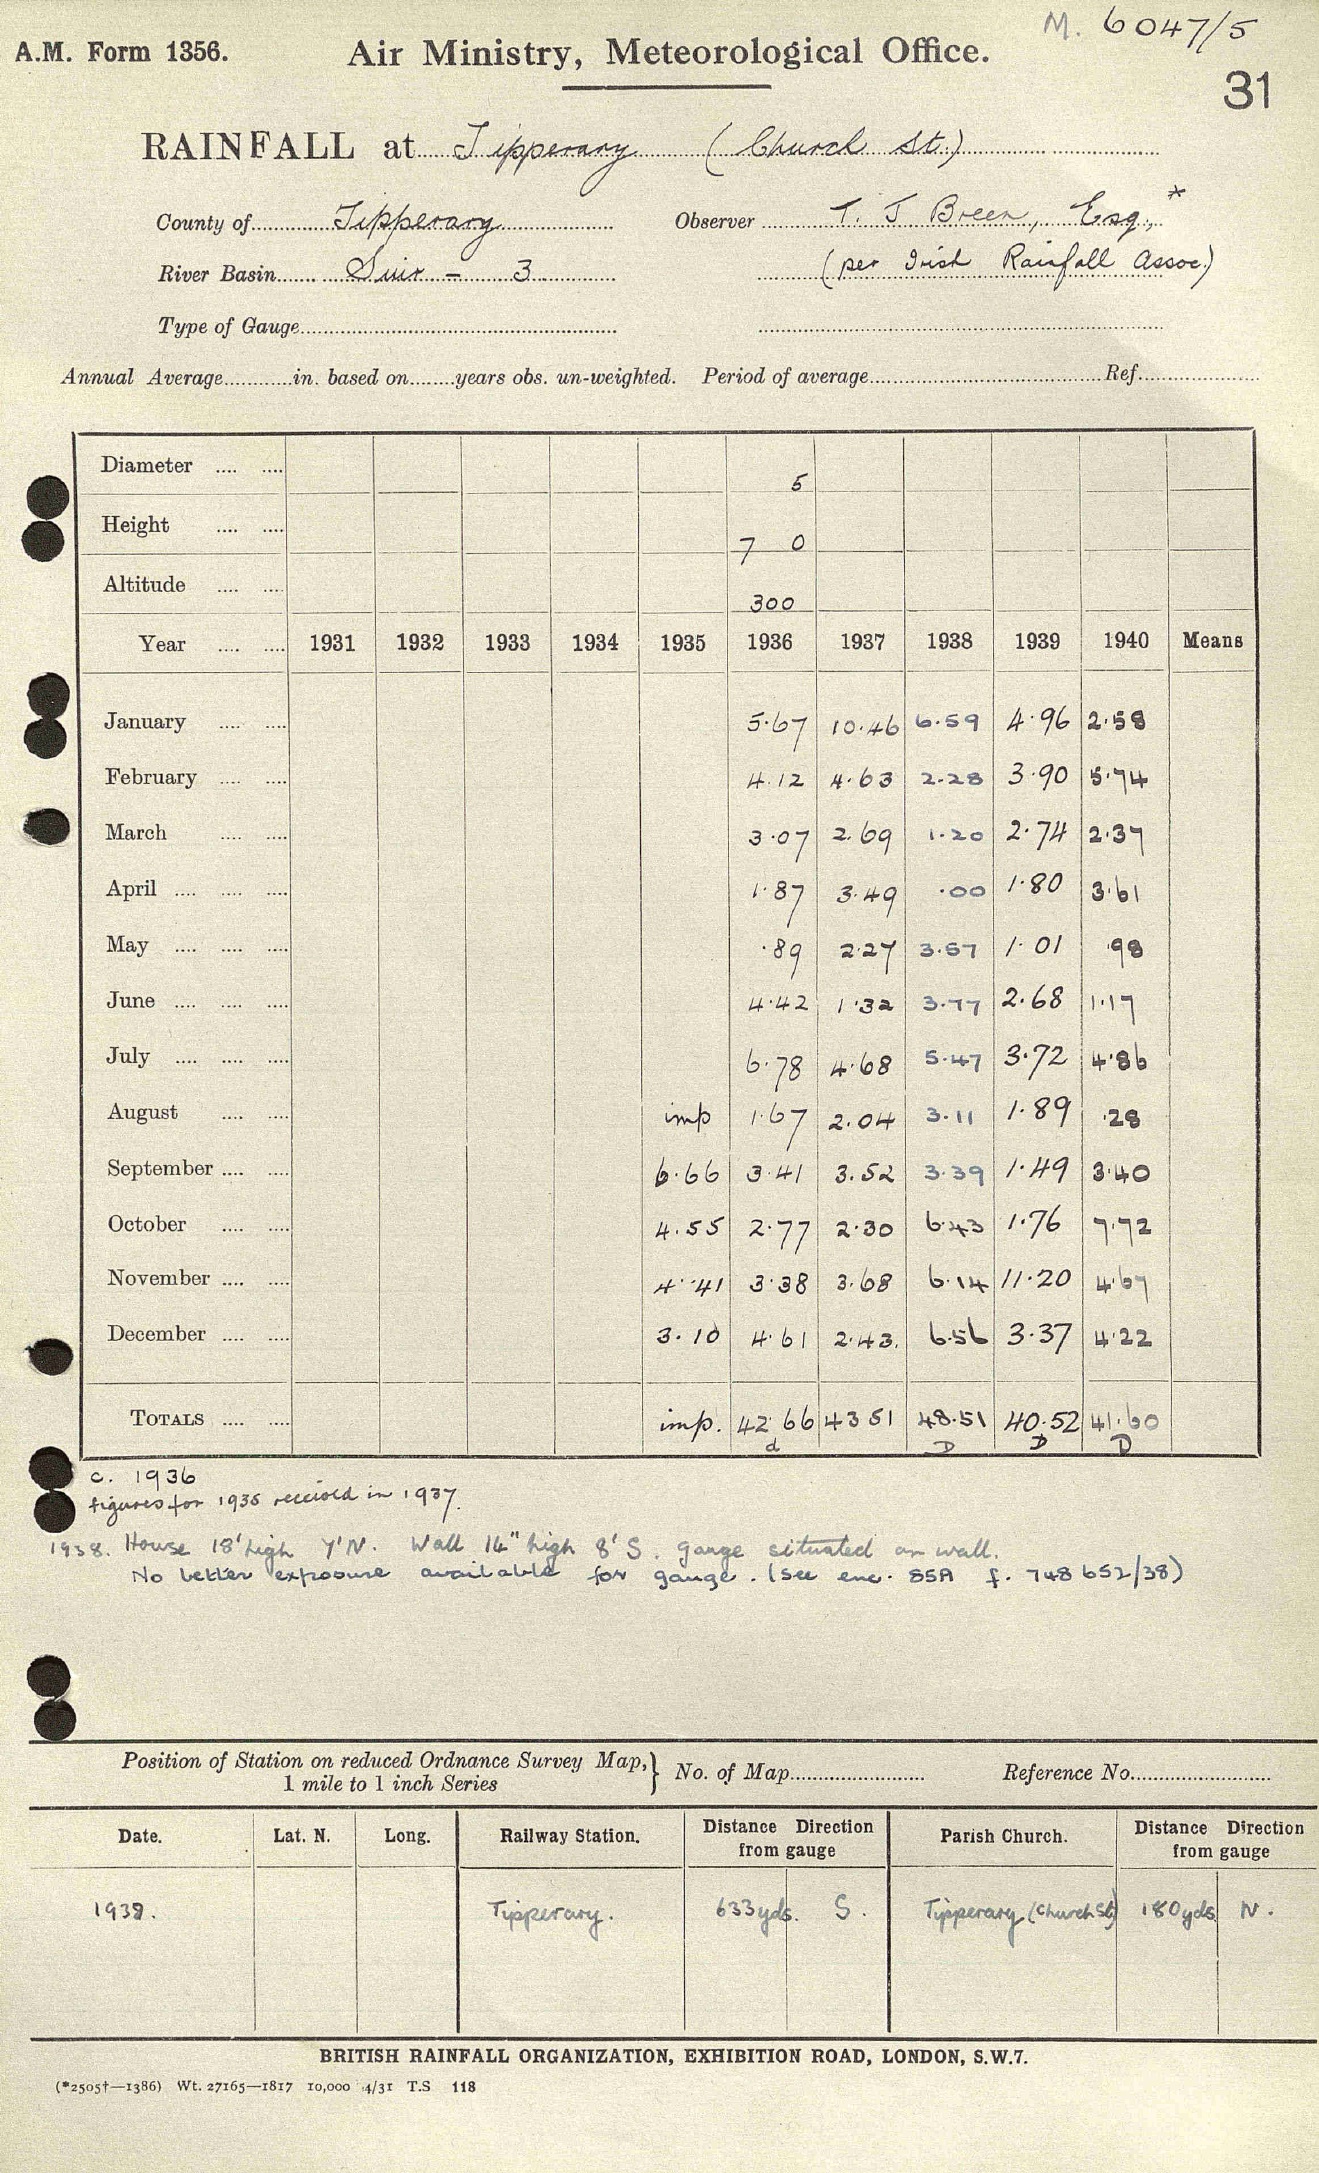 M. 6047/5
A.M. Form 1356. Air Ministry, Meteorological Office.
31
RAINFALL at Tipperary (Church St.)
County of Tipperary Observer T. J Breen, Esq., *
River Basin Suir - 3 (per Irish Rainfall Assoc.)
Type of Gauge
Annual Average in. based on years obs. un-weighted. Period of average Ref.
Diameter .... .... 5
Height .... .... 7 0
Altitude .... .... 300
Year .... .... 1931 1932 1933 1934 1935 1936 1937 1938 1939 1940 Means
January .... .... 5.67 10.46 6.59 4.96 2.58
February .... .... 4.12 4.63 2.28 3.90 5.74
March .... .... 3.07 2.69 1.20 2.74 2.37
April .... .... .... 1.87 3.49 .00 1.80 3.61
May .... .... .... .89 2.27 3.57 1.01 .98
June .... .... .... 4.42 1.32 3.77 2.68 1.17
July .... .... .... 6.78 4.68 5.47 3.72 4.86
August .... .... imp 1.67 2.04 3.11 1.89 .28
September .... .... 6.66 3.41 3.52 3.39 1.49 3.40
October .... .... 4.55 2.77 2.30 6.43 1.76 7.72
November .... .... 4.41 3.38 3.68 6.14 11.20 4.67
December .... .... 3.10 4.61 2.43. 6.56 3.37 4.22
TOTALS .... .... imp. 42.66 43 51 48.51 40.52 41.60
d D D D
c. 1936
figures for 1935 received in 1937.
1938. House 18' high 7' N. Wall 14" high 8' S. gauge situated on wall.
No better exposure available for gauge. (See enc. 85A f. 748652/38)
Position of Station on reduced Ordnance Survey Map, } No. of Map Reference No.
1 mile to 1 inch Series
Date. Lat. N. Long. Railway Station. Distance Direction from gauge Parish Church. Distance Direction from gauge
1938. Tipperary. 633yds. S. Tipperary (Church St) 180yds N.
BRITISH RAINFALL ORGANIZATION, EXHIBITION ROAD, LONDON, S.W.7.
(*2505†—1386) Wt. 27165—1817 10,000 4/31 T.S 118